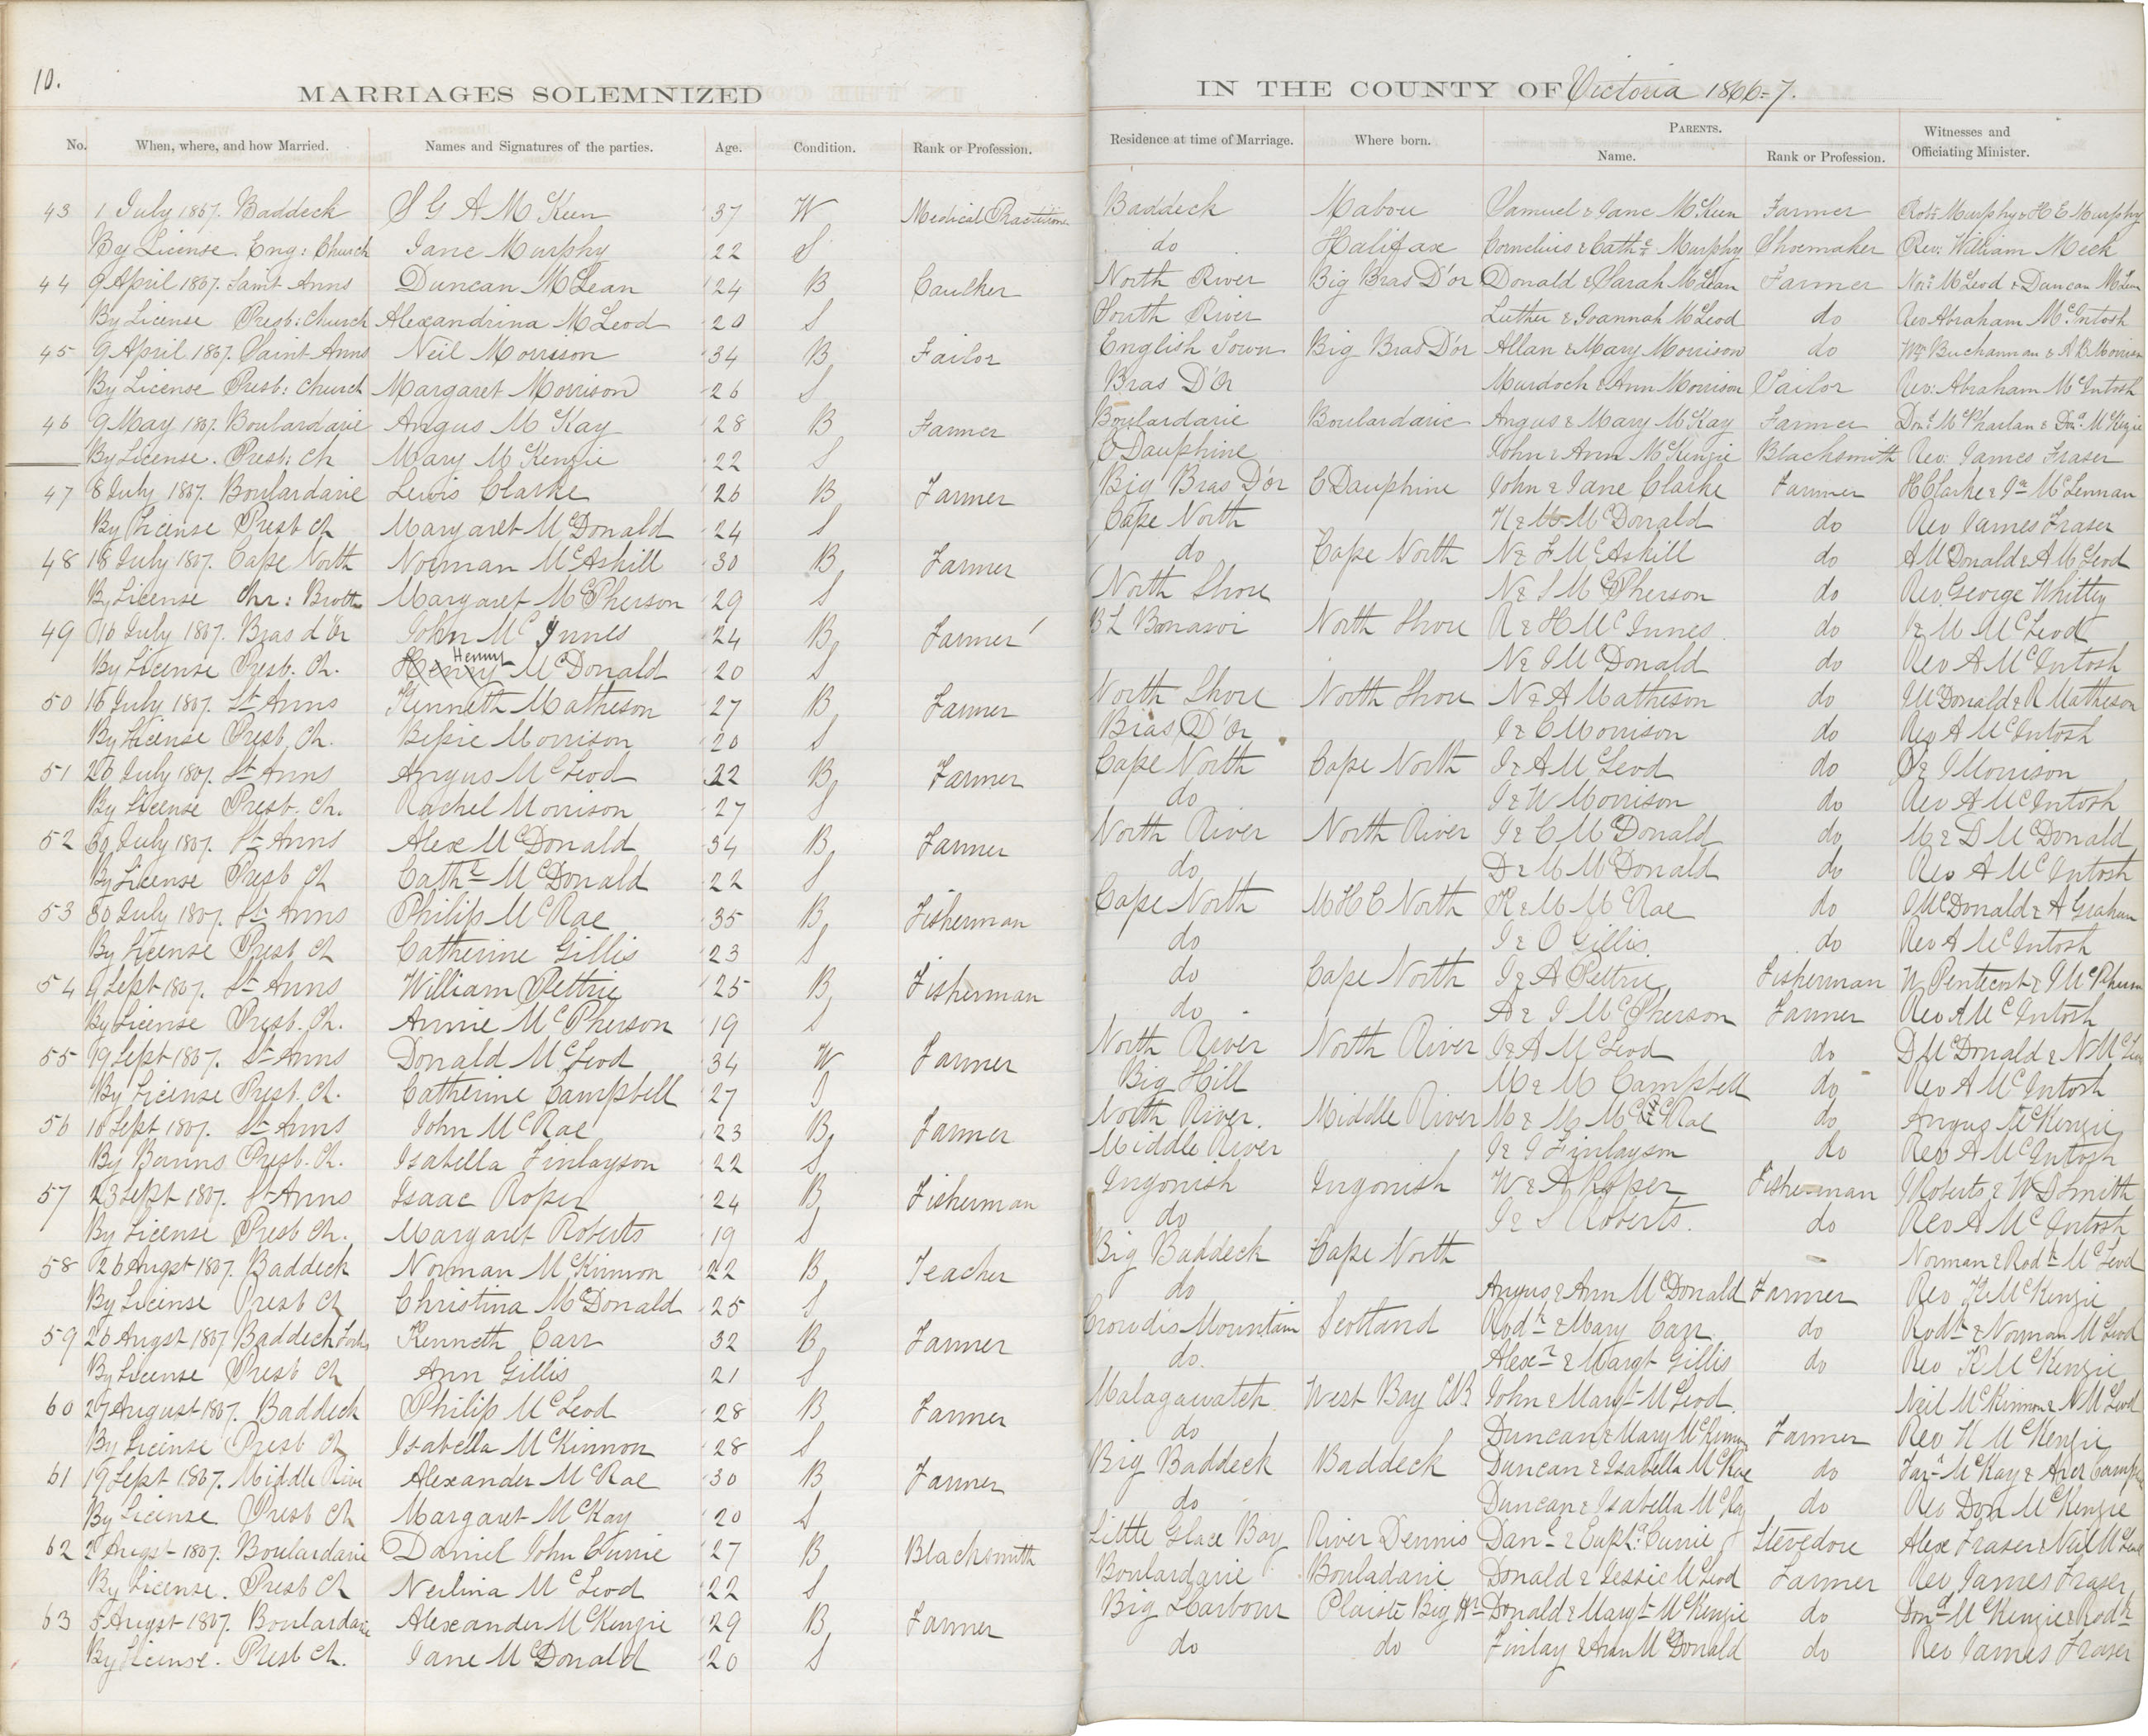 10.
MARRIAGES SOLEMNIZED IN THE COUNTY OF Victoria 1866=7.
No. When, where, and how Married. Names and Signatures of the parties. Age. Condition. Rank or Profession. Residence at time of Marriage. Where born. PARENTS. Name. Rank or Profession. Witnesses and Officiating Minister.
43 1 July 1867. Baddeck S G A McKeen 37 W Medical Practitioner Baddeck Mabou Samuel & Jane McKeen Farmer Robt Murphy & H E Murphy
By License. Eng: Church Jane Murphy 22 S do Halifax Cornelius & Cathe Murphy Shoemaker Rev: William Meek
44 9 April 1867. Saint Anns Duncan McLean 24 B Caulker North River Big Bras D'or Donald & Sarah McLean Farmer Nor: McLeod & Duncan McLean
By License Presb: Church Alexandrina McLeod 20 S South River Luther & Joannah McLeod do Rev Abraham McIntosh
45 9 April 1867. Saint Anns Neil Morrison 34 B Tailor English Town Big Bras D'or Allan & Mary Morrison do Wm Buchannan & A B Morrison
By License Presb: Church Margaret Morrison 26 S Bras D'Or Murdoch & Ann Morrison Sailor Rev: Abraham McIntosh
46 9 May 1867. Boulardarie Angus McKay 28 B Farmer Boulardarie Boulardarie Angus & Mary McKay Farmer Don. McPharlan & Don. McKezie
By License. Presb: Ch Mary McKenzie 22 S C Dauphine John & Ann McKenzie Blacksmith Rev: James Fraser
47 8 July 1867. Boulardarie Lewis Clarke 26 B Farmer Big Bras D'or C Dauphine John & Jane Clarke Farmer H Clarke & Jn McLennan
By License Presb Ch Margaret McDonald 24 S Cape North N & M McDonald do Rev James Fraser
48 18 July 1867. Cape North Norman McAskill 30 B Farmer do Cape North N & F McAskill do A McDonald & A McLeod
By License Chr: Broth Margaret McPherson 29 S North Shore N & S McPherson do Rev. George Whittey
49 16 July 1867. Bras d'Or John McInnes 24 B Farmer B L Bonasoi North Shore R & H McInnes. do J & M McLeod
By License Presb. Ch. Henny McDonald 20 S N & J McDonald do Rev A McIntosh
50 16 July 1867. St Anns Kenneth Matheson 27 B Farmer North Shore North Shore N & A Matheson do J McDonald & R Matheson
By License Presb. Ch. Bessie Morrison 20 S Bras D'Or J & C Morrison do Rev A McIntosh
51 26 July 1867. St Anns Angus McLeod 22 B Farmer Cape North Cape North J & A McLeod do D & J Morrison
By License Presb. Ch. Rachel Morrison 27 S do J & W Morrison do Rev A McIntosh
52 30 July 1867. St Anns Alex McDonald 34 B Farmer North River North River J & C McDonald do M & D McDonald
By License Presb Ch Cathe McDonald 22 S do D & M McDonald do Rev A McIntosh
53 30 July 1867. St Anns Philip McRae 35 B Fisherman Cape North M H C North K & M McRae do J McDonald & A Graham
By License Presb Ch Catherine Gillis 23 S do J & O Gillis. do Rev A McIntosh
54 9 Sept 1867. St Anns William Pettrie 25 B Fisherman do Cape North J & A Pettrie Fisherman W Pentecost & J McPherson
By License Presb. Ch. Annie McPherson 19 S do A & J McPherson Farmer Rev A McIntosh
55 19 Sept 1867. St Anns Donald McLeod 34 W Farmer North River North River J & A McLeod do D McDonald & N McLeod
By License Presb. Ch. Catherine Campbell 27 S Big Hill M & M Campbell do Rev A McIntosh
56 18 Sept 1867. St Anns John McRae 23 B Farmer North River. Middle River M & M McRae do Angus McKenzie
By Banns Presb. Ch. Isabella Finlayson 22 S Middle River J & J Finlayson do Rev A McIntosh
57 23 sept 1867. St Anns Isaac Roper 24 B Fisherman Ingonish Ingonish W & A Roper Fisherman J Roberts & W D Smith
By License Presb Ch. Margaret Roberts 19 S do J & S Roberts. do Rev A McIntosh
58 26 Augst 1867. Baddeck Norman McKinnon 22 B Teacher Big Baddeck Cape North Norman & Rodk McLeod
By License Presb Ch Christina McDonald 25 S do Angus & Ann McDonald Farmer Rev K McKenzie
59 26 Augst 1867 Baddeck Forks Kenneth Carr 32 B Farmer Crowdis Mountain Scotland Rodk & Mary Carr do Rodk & Norman McLeod
By License Presb Ch Ann Gillis 21 S do. Alexr & Margt Gillis do Rev K McKenzie
60 27 August 1867. Baddeck Philip McLeod 28 B Farmer Malagawatch West Bay C.B. John & Margt McLeod. Neil McKinnon & N McLeod
By License Presb Ch Isabella McKinnon 28 S do Duncan & Mary McKinnon Farmer Rev K McKenzie
61 19 Sept 1867. Middle River Alexander McRae 30 B Farmer Big Baddeck Baddeck Duncan & Isabella McRae do Far. McKay & Alexr Campbell
By License. Presb Ch Margaret McKay 20 S do Duncan & Isabella McKay do Rev Don McKenzie
62 2 Augst 1867. Boulardarie Daniel John Currie 27 B Blacksmith Little Glace Bay River Dennis Danl & Euph: Currie Stevedore Alex Fraser & Neil McLeod
By License. Presb Ch Neilina McLeod 22 S Boulardarie Bouladarie Donald & Jessie McLeod Farmer Rev James Fraser
63 5 Augst 1867. Boulardarie Alexander McKenzie 29 B Farmer Big Harbour Big Hr Donald & Margt McKenzie do Dond McKenzie & Rodk
By License. Presb Ch. Jane McDonald 20 S do do Finlay & Ann McDonald do Rev James Fraser